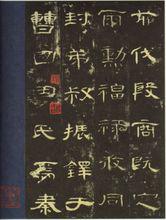 翦伐殷商既定
爾勳福祿攸同
封弟叔振鐸于
曹國因氏焉秦